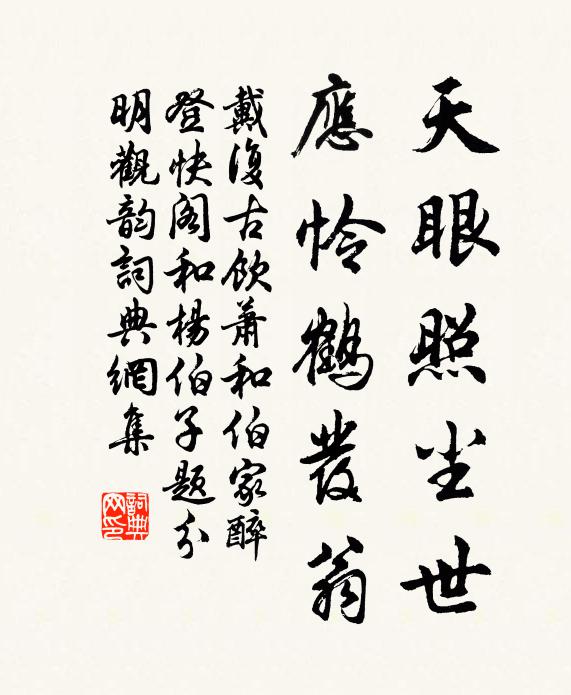 天眼照尘世
應怜鶴發翁
戴復古飲蕭和伯家醉
登快阁和楊伯子題分
明觀韵詞典網集
詞典网印